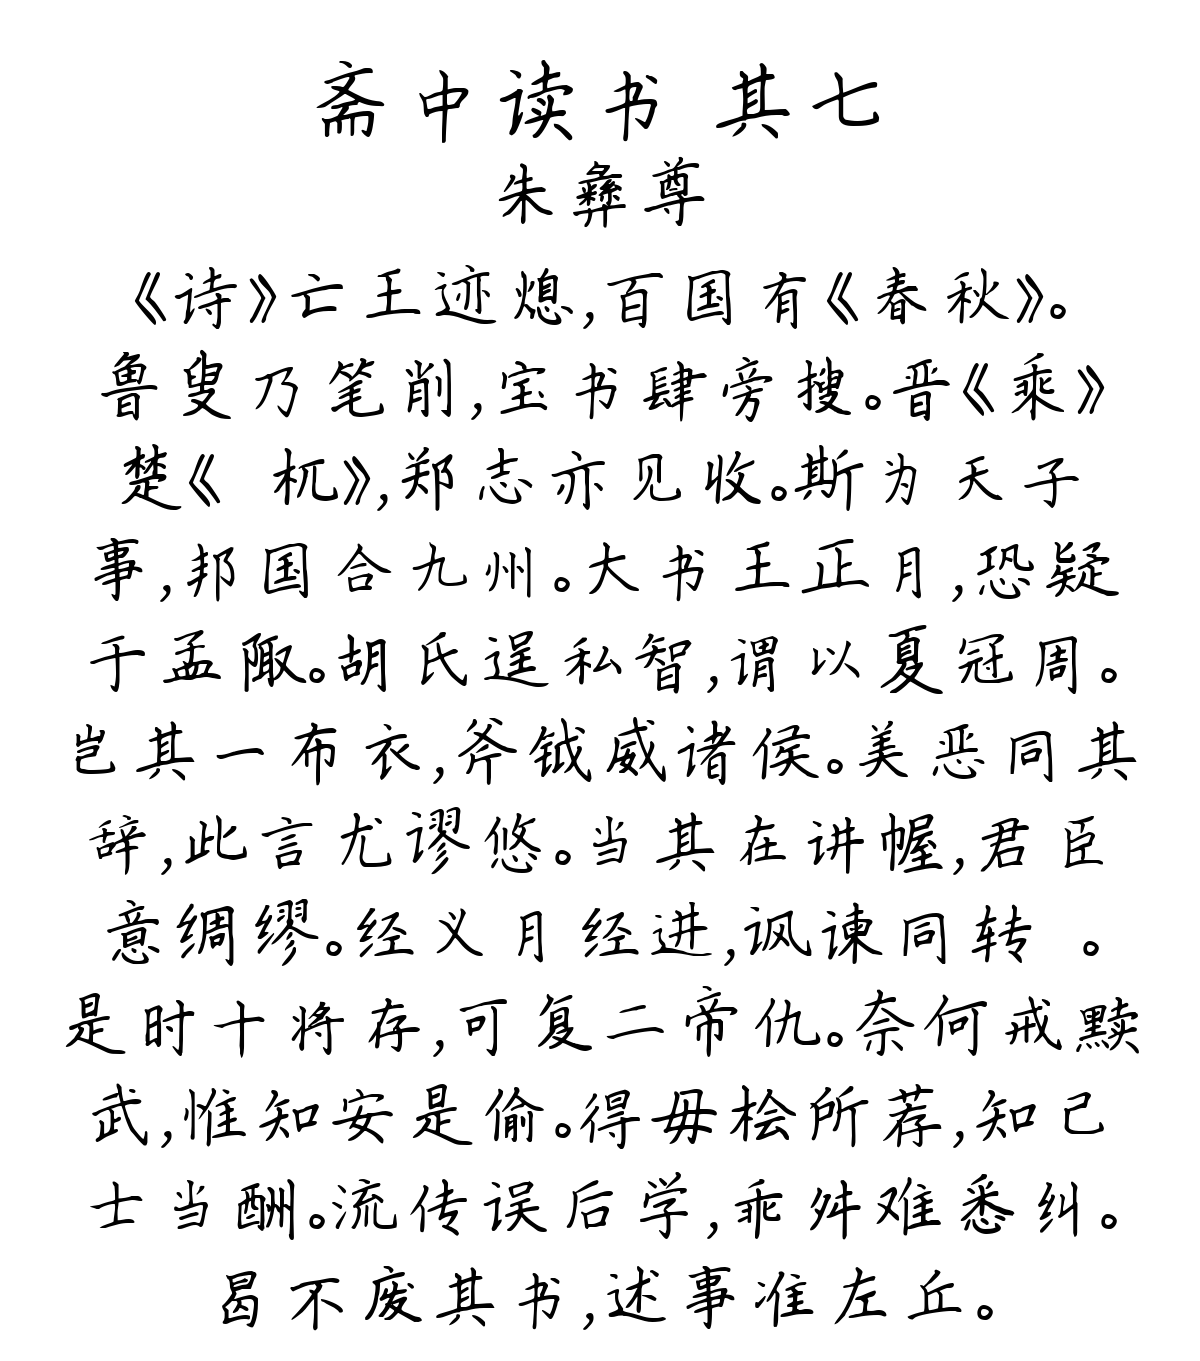 斋中读书 其七
朱彝尊
《诗》亡王迹熄,百国有《春秋》。
鲁叟乃笔削,宝书肆旁搜。晋《乘》
楚《 杌》,郑志亦见收。斯为天子
事,邦国合九州。大书王正月,恐疑
于孟陬。胡氏逞私智,谓以夏冠周。
岂其一布衣,斧钺威诸侯。美恶同其
辞,此言尤谬悠。当其在讲幄,君臣
意绸缪。经义月经进,讽谏同转 。
是时十将存,可复二帝仇。奈何戒黩
武,惟知安是偷。得毋桧所荐,知己
士当酬。流传误后学,乖舛难悉纠。
曷不废其书,述事准左丘。